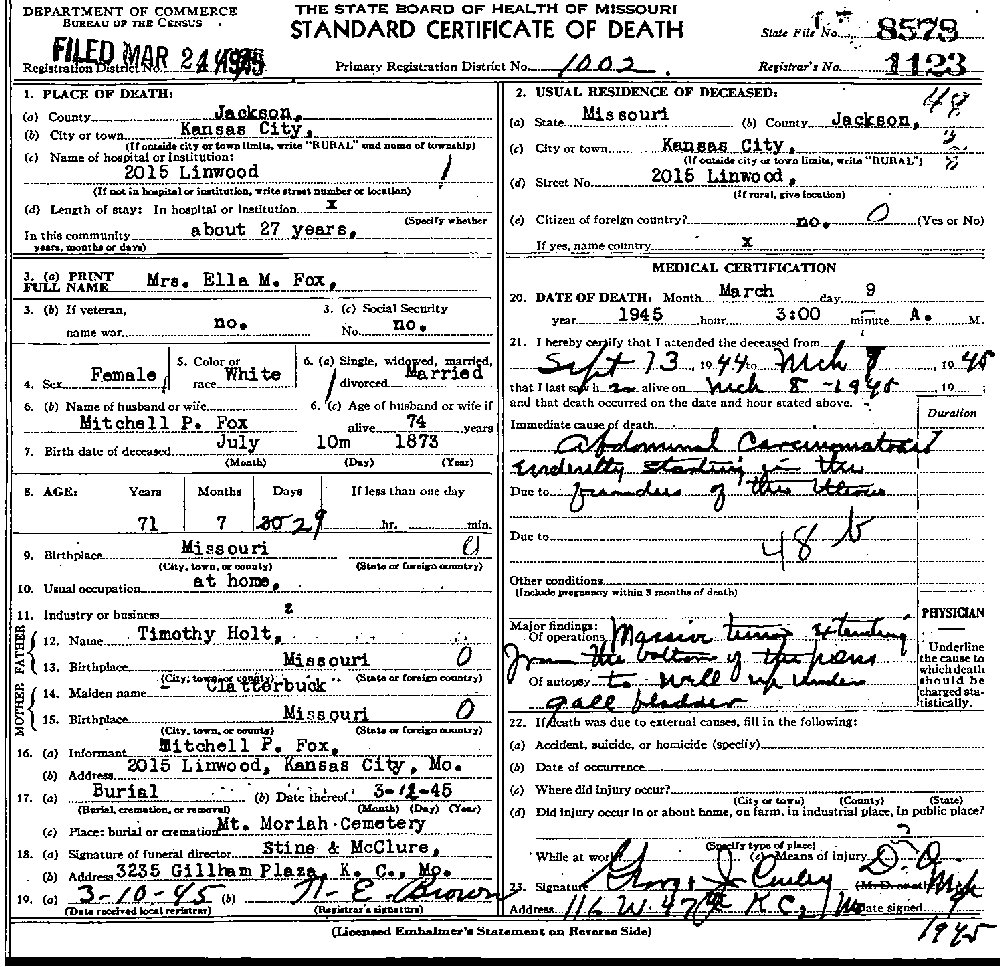 DEPARTMENT OF COMMERCE
BUREAU OF THE CENSUS
THE STATE BOARD OF HEALTH OF MISSOURI
STANDARD CERTIFICATE OF DEATH
State File No. 8578
FILED MAR 21 1945
Registration District No.
Primary Registration District No. 1002.
Registrar's No. 1123
1. PLACE OF DEATH:
(a) County Jackson,
(b) City or town Kansas City,
(If outside city or town limits, write "RURAL" and name of township)
(c) Name of hospital or institution:
2015 Linwood
(If not in hospital or institution, write street number or location)
(d) Length of stay: In hospital or institution x
(Specify whether
In this community about 27 years,
years, months or days)
2. USUAL RESIDENCE OF DECEASED: 48
(a) State Missouri (b) County Jackson,
(c) City or town Kansas City,
(If outside city or town limits, write "RURAL")
(d) Street No. 2015 Linwood,
(If rural, give location)
(e) Citizen of foreign country? no. 0 (Yes or No)
If yes, name country x
3. (a) PRINT FULL NAME Mrs. Ella M. Fox,
3. (b) If veteran, name war no.
3. (c) Social Security No. no.
4. Sex Female
5. Color or race White
6. (a) Single, widowed, married, divorced Married
6. (b) Name of husband or wife
Mitchell P. Fox
6. (c) Age of husband or wife if alive 74 years
7. Birth date of deceased July 10m 1873
(Month) (Day) (Year)
8. AGE: Years Months Days If less than one day
71 7 30 29 hr. min.
9. Birthplace Missouri 0
(City, town, or county) (State or foreign country)
10. Usual occupation at home,
11. Industry or business
FATHER
12. Name Timothy Holt,
13. Birthplace Missouri 0
(City, town, or county) (State or foreign country)
MOTHER
14. Maiden name Clatterbuck
15. Birthplace Missouri 0
(City, town, or county) (State or foreign country)
16. (a) Informant Mitchell P. Fox,
(b) Address 2015 Linwood, Kansas City, Mo.
17. (a) Burial (b) Date thereof 3-12-45
(Burial, cremation, or removal) (Month) (Day) (Year)
(c) Place: burial or cremation Mt. Moriah Cemetery
18. (a) Signature of funeral director Stine & McClure,
(b) Address 3235 Gillham Plaza, K. C., Mo.
19. (a) 3-10-45 (b) N. E. Brown
(Date received local registrar) (Registrar's signature)
MEDICAL CERTIFICATION
20. DATE OF DEATH: Month March day 9
year 1945 hour 3:00 minute A. M.
21. I hereby certify that I attended the deceased from
Sept 13 1944 to Mch 1945
that I last saw h alive on Mch 8 - 1945 19
and that death occurred on the date and hour stated above.
Duration
Immediate cause of death
Abdominal Carcinomatosis
starting in the
Due to of the Uterus
Due to
48 b
Other conditions
(Include pregnancy within 3 months of death)
Major findings:
Of operations Massive tumor extending
from the bottom of the
Of autopsy to well up under
gall bladder
PHYSICIAN
Underline the cause to which death should be charged statistically.
22. If death was due to external causes, fill in the following:
(a) Accident, suicide, or homicide (specify)
(b) Date of occurrence
(c) Where did injury occur?
(City or town) (County) (State)
(d) Did injury occur in or about home, on farm, in industrial place, in public place?
(Specify type of place)
While at work (e) Means of injury
23. Signature George J. Conley D.O.
Address 116 W. 47 K C, Mo Date signed Mch 9
1945
(Licensed Embalmer's Statement on Reverse Side)